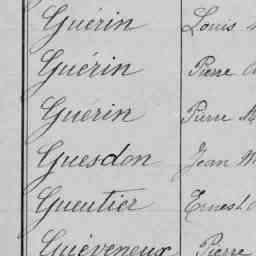 Guérin Louis
Guérin Pierre
Guérin Pierre
Guesdon Jean M
Gueutier Ernest
Guéveneux Pierre